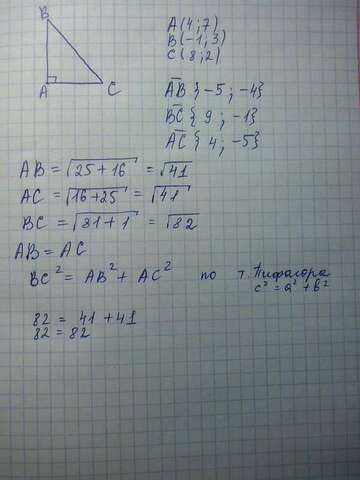 B
A
C
A(4;7)
B(-1;3)
C(8;2)
AB {-5; -4}
BC {9; -1}
AC {4; -5}
AB = √25+16 = √41
AC = √16+25 = √41
BC = √81+1 = √82
AB = AC
BC² = AB² + AC² по т. Пифагора
c² = a² + b²
82 = 41 + 41
82 = 82